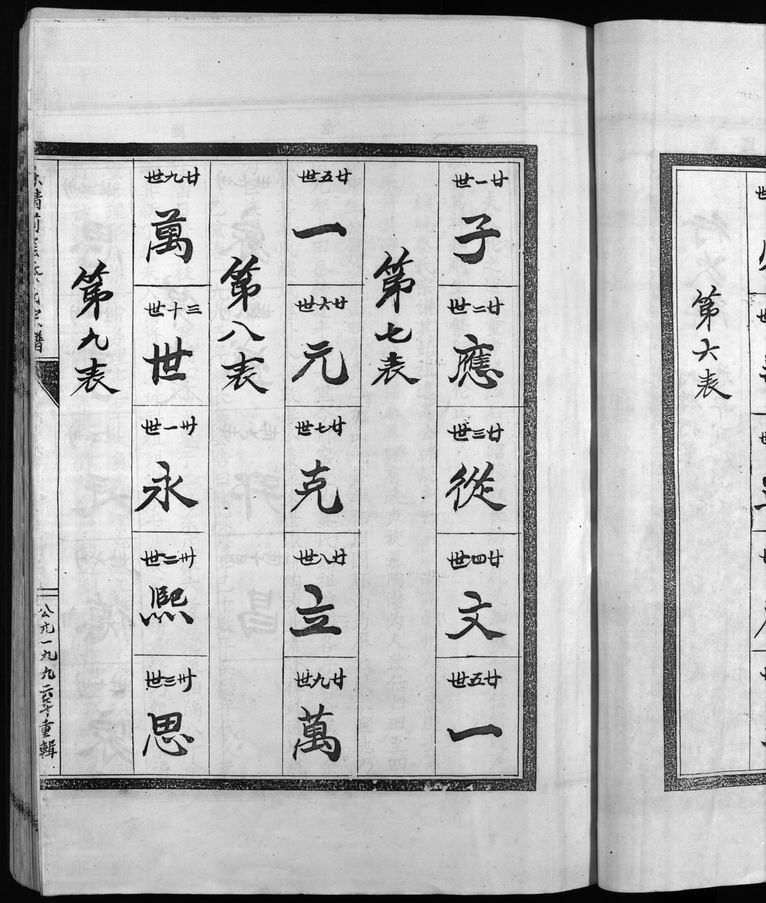 第六表
廿一世
子
廿二世
應
廿三世
從
廿四世
文
廿五世
一
第七表
廿五世
一
廿六世
元
廿七世
克
廿八世
立
廿九世
萬
第八表
廿九世
萬
三十世
世
卅一世
永
卅二世
熙
卅三世
思
第九表
公元一九九六年重輯